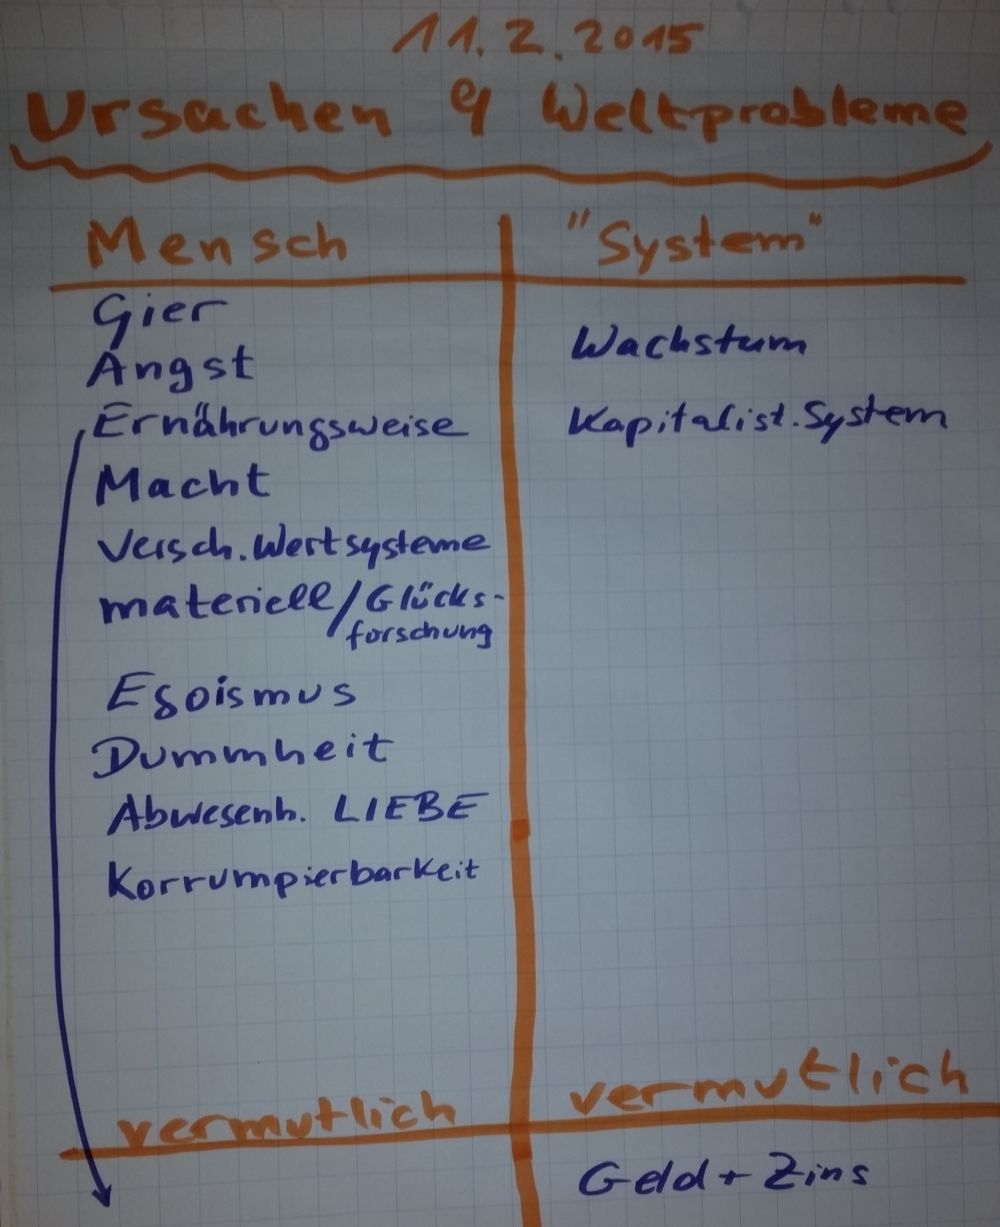 11.2.2015
Ursachen d Weltprobleme
Mensch
Gier
Angst
Ernährungsweise
Macht
Versch. Wertsysteme
materiell/Glücks-
forschung
Egoismus
Dummheit
Abwesenh. LIEBE
Korrumpierbarkeit
vermutlich
"System"
Wachstum
Kapitalist. System
vermutlich
Geld + Zins